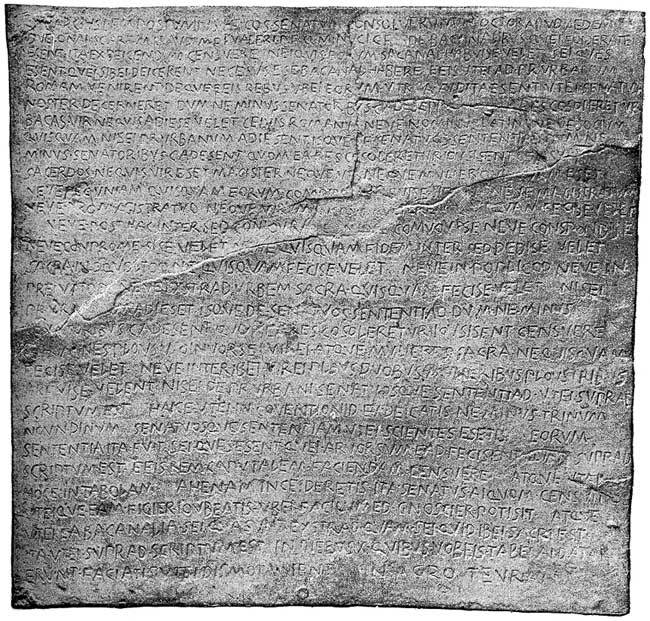 POSTVMIVS L F COS SENATVM CONSOLVERVNT N OCTOB APVD AEDEM
DVELONAI SC ARF M VALERI P F Q MINVCI C F DE BACANALIBVS QVEI FOIDERATEI
ESENT ITA EXDEICENDVM CENSVERE NEIQVIS EORVM BACANAL HABVISE VELET SEI QVES
ESENT QVEI SIBEI DEICERENT NECESVS ESE BACANAL HABERE EEIS VTEI AD PR VRBANVM
ROMAM VENIRENT DEQVE EEIS REBVS VBEI EORVM VTR A AVDITA ESENT VTEI SENATVS
NOSTER DECERNERET DVM NE MINVS SENATORBVS C ADESENT RES COSOLORETVR
BACAS VIR NEQVIS ADIESE VELET CEIVIS ROMANVS NEVE NOMINVS LATINI
QVISQVAM NISEI PR VRBANVM ADIESENT ISQVE DE SENATVOS SENTENTIAD DVM NE
MINVS SENATORIBVS C ADESENT QVOM EA RES COSOLERETVR IOVSISENT
SACERDOS NEQVIS VIR ESET MAGISTER NEQVE VIR NEQVE MVLIER ESET
NEVE PECVNIAM QVISQVAM EORVM COMOINEM VELET NEVE MAGISTRATVM
NEVE PRO MAGISTRATVD NEQVE VIRVM QVIQVAM FECISE VELET
NEVE POST HAC INTER SED CONIOVRASE NEVE COMVOVISE NEVE CONSPONDISE
NEVE CONPROMESISE VELET NEVE QVISQVAM FIDEM INTER SED DEDISE VELET
SACRA IN OQVOLTOD NE QVISQVAM FECISE VELET NEVE IN POPLICOD NEVE IN
PREIVATOD NEVE EXSTRAD VRBEM SACRA QVISQVAM FECISE VELET NISEI
PR VRBANVM ADIESET ISQVE DE SENATVOS SENTENTIAD DVM NE MINVS
SENATORIBVS C ADESENT QVOM EA RES COSOLERETVR IOVSISENT CENSVERE
HOMINES PLOVS V OINVORSEI VIREI ATQVE MVLIERES SACRA NE QVISQVAM
FECISE VELET NEVE INTER IBEI VIREI PLOVS DVOBVS MVLIERIBVS PLOVS TRIBVS
ARFVISE VELENT NISEI DE PR VRBANI SENATVOSQVE SENTENTIAD VTEI SVPRAD
SCRIPTVM EST HAICE VTEI IN COVENTIONID EXDEICATIS NE MINVS TRINVM
NOVNDINVM SENATVOSQVE SENTENTIAM VTEI SCIENTES ESETIS EORVM
SENTENTIA ITA FVIT SEI QVES ESENT QVEI ARVORSVM EAD FECISENT QVAM SVPRAD
SCRIPTVM EST EEIS REM CAPVTALEM FACIENDAM CENSVERE ATQVE VTEI
HOCE IN TABOLAM AHENAM INCEIDERETIS ITA SENATVS AIQVOM CENSVIT
VTEIQVE EAM FIGIER IOVBEATIS VBEI FACILVMED GNOSCIER POTISIT ATQVE
VTEI EA BACANALIA SEI QVA SVNT EXSTRAD QVAM SEI QVID IBEI SACRI EST
ITA VTEI SVPRAD SCRIPTVM EST IN DIEBVS X QVIBVS VOBEIS TABELAI DATAI
ERVNT FACIATIS VTEI DISMOTA SIENT IN AGRO TEVRANO